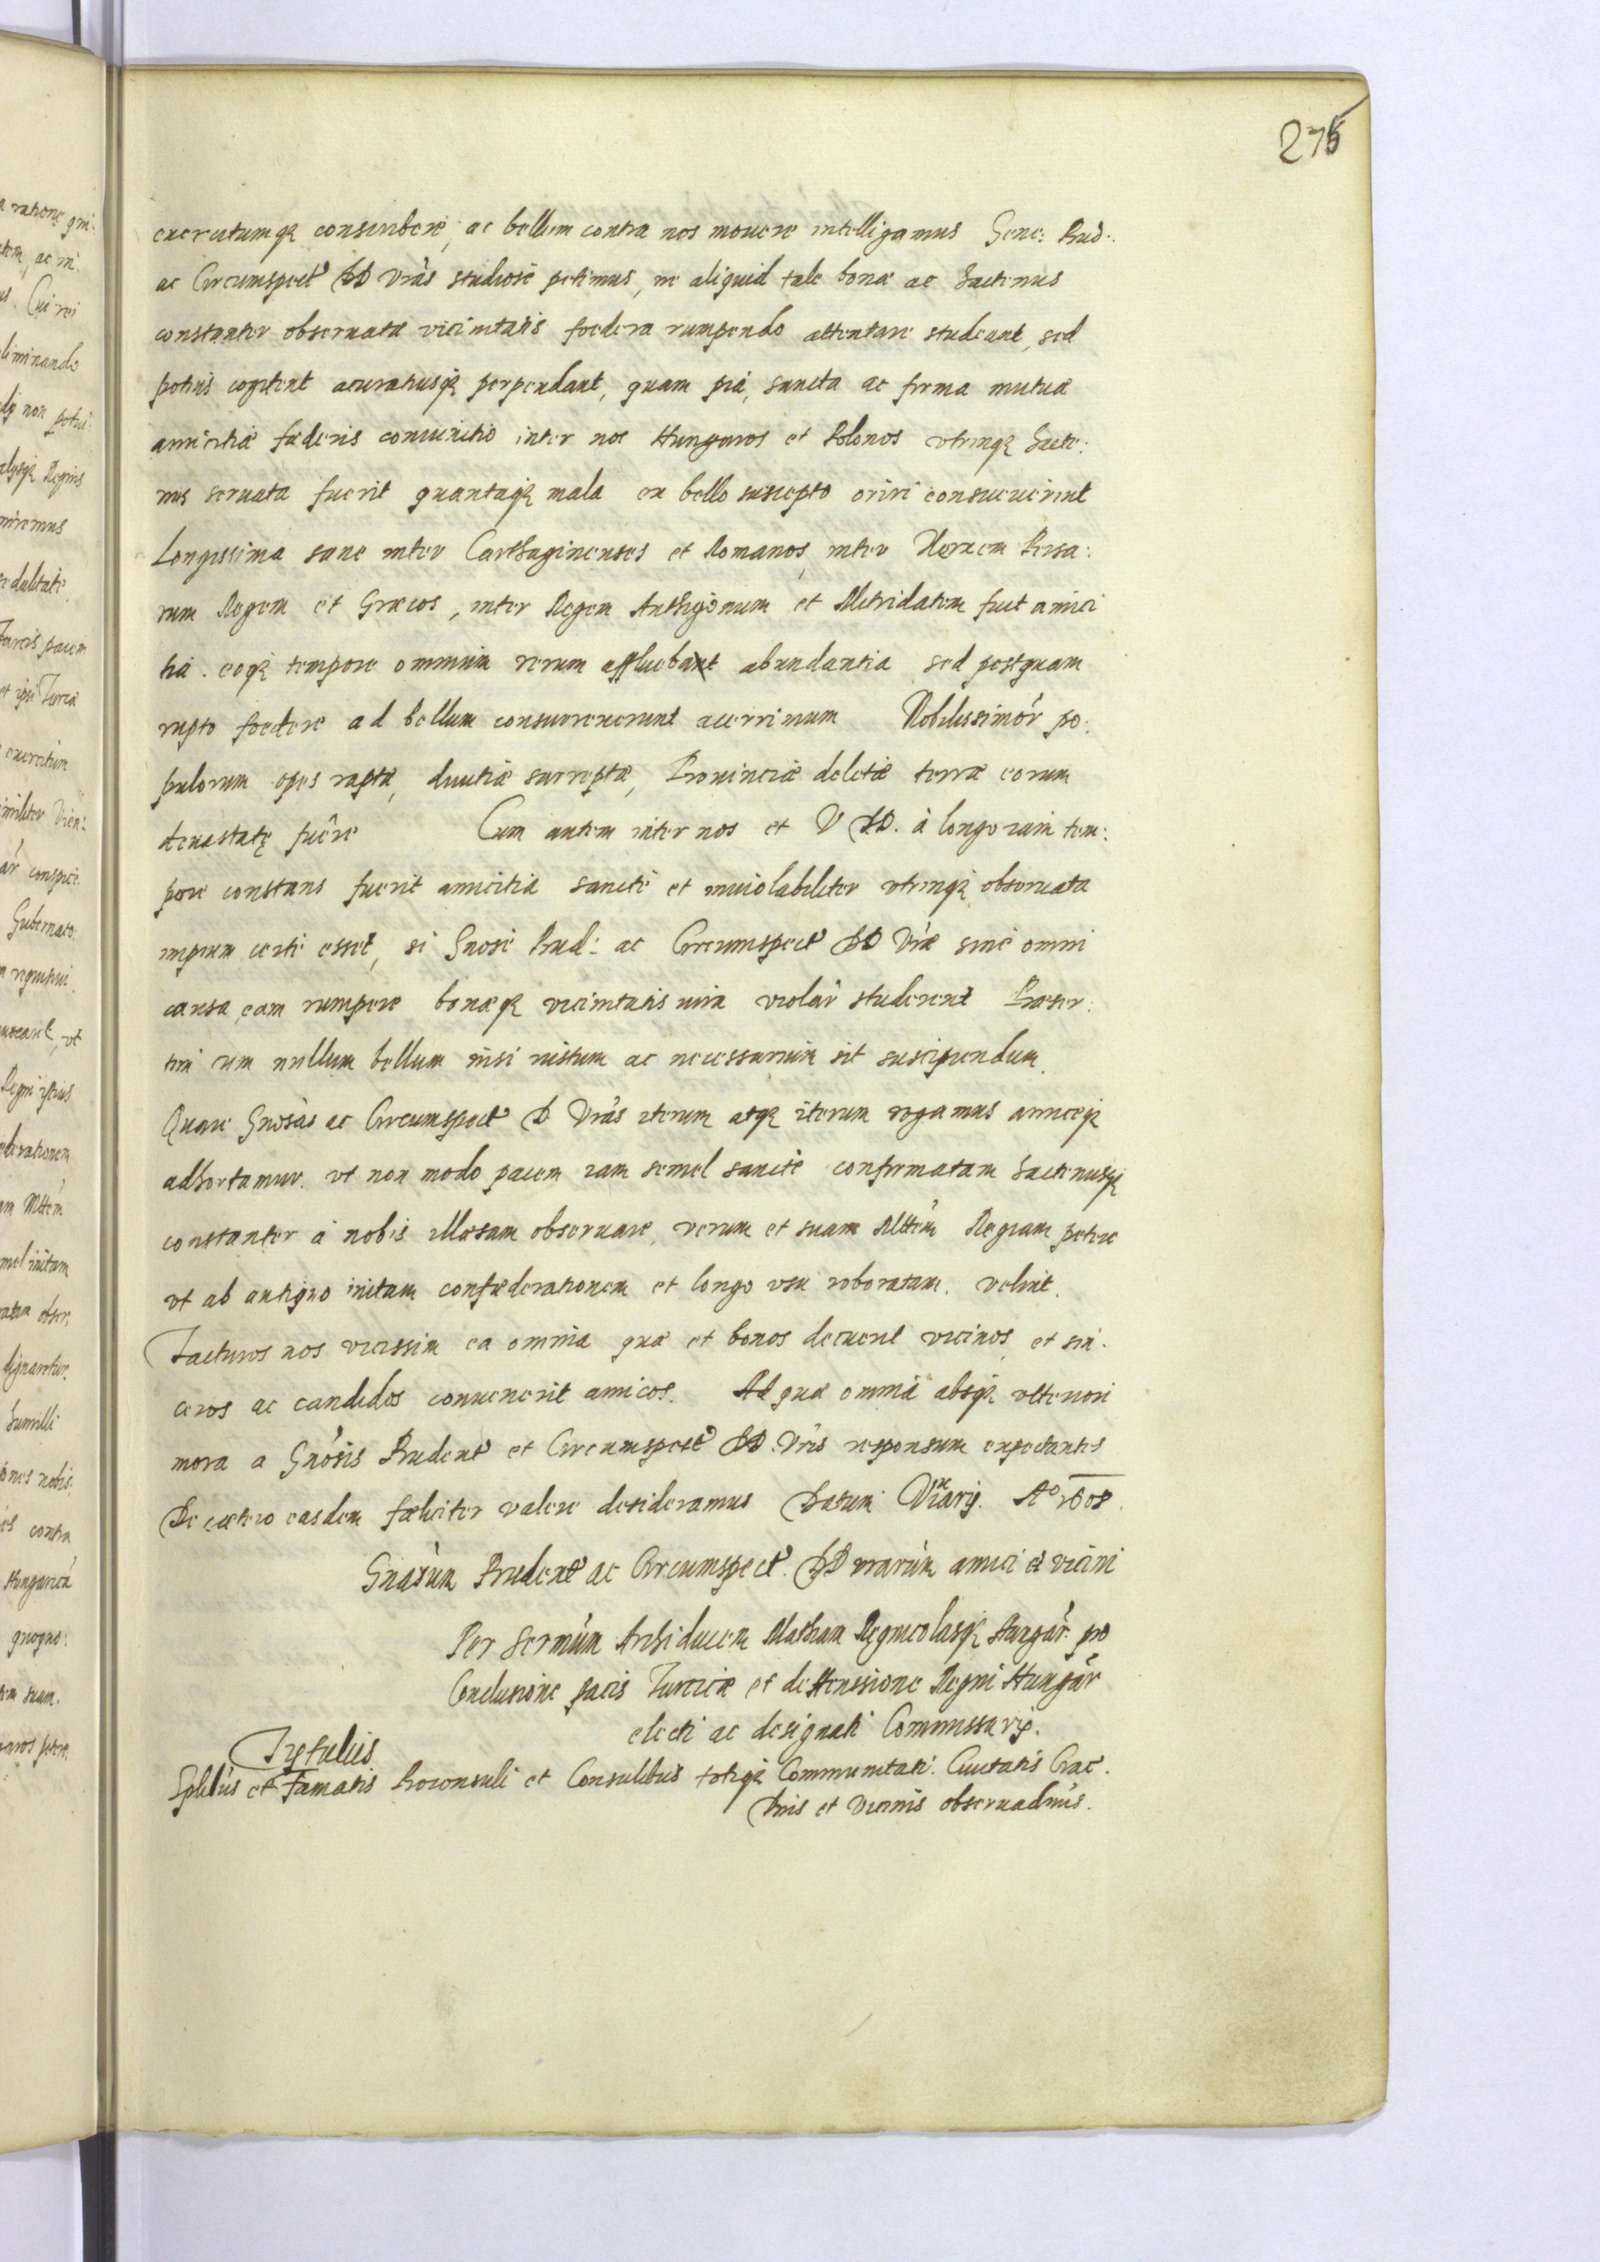 275
exercitumq3 conscribere, ac bellum contra nos mouere intelligamus Gene: Prud:
ac Circumspect DD Vras studiose petimus, ne aliquid tale bonae ac hactenus
constanter obseruatae vicinitatis foedera rumpendo attentare studeant, sed
potius cogitent acuratiusq3 perpendant, quam pia, sancta ac firma mutuae
amicitiae faederis coniunctio inter nos Hungaros et Polonos utrinq3 hacte:
nus seruata fuerit quantaq3 mala ex bello suscepto oriri consueuerint
Longissima sane inter Carthaginenses et Romanos, inter Xerxem Persa:
rum Regem et Graecos, inter Regem Anthigonum et Metridatem fuit amici
tia. eoq3 tempore omnium rerum affluebat abundantia sed postquam
rupto foedere ad bellum consurrexerunt acerrimum Nobilissimor po:
pulorum opes raptae, diuitiae surreptae, Prouinciae deletae terrae eorum
deuastatę fuêre Cum autem inter nos et V DD. à longo iam tem:
pore constans fuerit amicitia sancte et inuiolabiliter vtrinq3 obseruata
impium certe esset, si Gnose Prud: ac Circumspect DD Vrae sine omni
causa eam rumpere bonaeq3 vicinitatis iura violar studerent Praeser:
tim cum nullum bellum nisi iustum ac necessarium sit suscipiendum.
Quare Gnosas ac Circumspect D Vras iterum atq3 iterum rogamus amiceq3
adhortamur. vt non modo pacem iam semel sancte confirmatam hactenusq3
constanter à nobis illaesam obseruare, verum et suam Mttem Regiam petere
vt ab antiquo initam confaederationem et longo vsu roboratam. velint.
Facturos nos vicissim ea omnia quae et bonos decuerit vicinos et sin:
ceros ac candidos conuenerit amicos. Ad quae omnia absq3 vlteriori
mora a Gnosis Prudent et Circumspect DD. Vris responsum expectantes
De caetero easdem faeliciter valere desideramus Datum Viarij. Ao 1608.
Gnarum Prudent ac Circumspect. DD vrarum amici et vicini
Per Sermum Archiducem Mathiam Regnicolasq3 Hungar. pro
Conclusione pacis Turcicae et deffensione Regni Hungar
electi ac designati Commissarij.
Tytulus
Splibus et Famatis Proconsuli et Consulibus totiq3 Communitati Ciuitatis Crac.
Dnis et Vicinis obseruadmis.